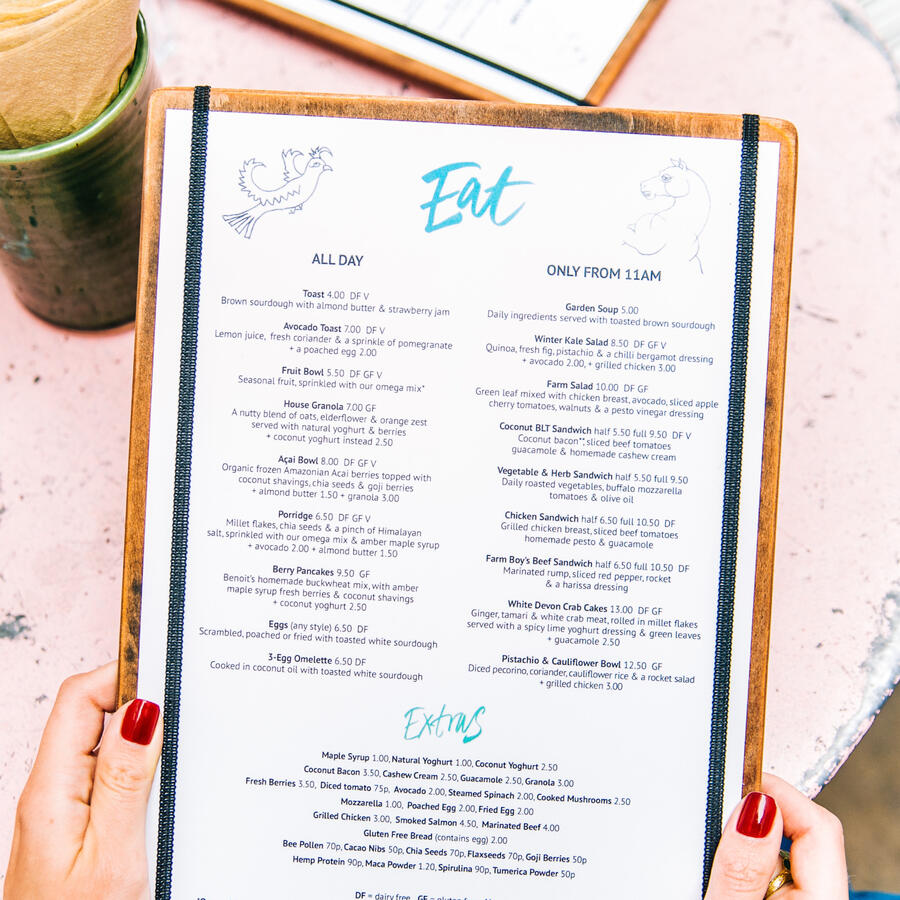 Eat
ALL DAY
Toast 4.00 DF V
Brown sourdough with almond butter & strawberry jam
Avocado Toast 7.00 DF V
Lemon juice, fresh coriander & a sprinkle of pomegranate
+ a poached egg 2.00
Fruit Bowl 5.50 DF GF V
Seasonal fruit, sprinkled with our omega mix*
House Granola 7.00 GF
A nutty blend of oats, elderflower & orange zest
served with natural yoghurt & berries
+ coconut yoghurt instead 2.50
Açai Bowl 8.00 DF GF V
Organic frozen Amazonian Acai berries topped with
coconut shavings, chia seeds & goji berries
+ almond butter 1.50 + granola 3.00
Porridge 6.50 DF GF V
Millet flakes, chia seeds & a pinch of Himalayan
salt, sprinkled with our omega mix & amber maple syrup
+ avocado 2.00 + almond butter 1.50
Berry Pancakes 9.50 GF
Benoit's homemade buckwheat mix, with amber
maple syrup fresh berries & coconut shavings
+ coconut yoghurt 2.50
Eggs (any style) 6.50 DF
Scrambled, poached or fried with toasted white sourdough
3-Egg Omelette 6.50 DF
Cooked in coconut oil with toasted white sourdough
ONLY FROM 11AM
Garden Soup 5.00
Daily ingredients served with toasted brown sourdough
Winter Kale Salad 8.50 DF GF V
Quinoa, fresh fig, pistachio & a chilli bergamot dressing
+ avocado 2.00, + grilled chicken 3.00
Farm Salad 10.00 DF GF
Green leaf mixed with chicken breast, avocado, sliced apple
cherry tomatoes, walnuts & a pesto vinegar dressing
Coconut BLT Sandwich half 5.50 full 9.50 DF V
Coconut bacon**, sliced beef tomatoes
guacamole & homemade cashew cream
Vegetable & Herb Sandwich half 5.50 full 9.50
Daily roasted vegetables, buffalo mozzarella
tomatoes & olive oil
Chicken Sandwich half 6.50 full 10.50 DF
Grilled chicken breast, sliced beef tomatoes
homemade pesto & guacamole
Farm Boy's Beef Sandwich half 6.50 full 10.50 DF
Marinated rump, sliced red pepper, rocket
& a harissa dressing
White Devon Crab Cakes 13.00 DF GF
Ginger, tamari & white crab meat, rolled in millet flakes
served with a spicy lime yoghurt dressing & green leaves
+ guacamole 2.50
Pistachio & Cauliflower Bowl 12.50 GF
Diced pecorino, coriander, cauliflower rice & a rocket salad
+ grilled chicken 3.00
Extras
Maple Syrup 1.00, Natural Yoghurt 1.00, Coconut Yoghurt 2.50
Coconut Bacon 3.50, Cashew Cream 2.50, Guacamole 2.50, Granola 3.00
Fresh Berries 3.50, Diced tomato 75p, Avocado 2.00, Steamed Spinach 2.00, Cooked Mushrooms 2.50
Mozzarella 1.00, Poached Egg 2.00, Fried Egg 2.00
Grilled Chicken 3.00, Smoked Salmon 4.50, Marinated Beef 4.00
Gluten Free Bread (contains egg) 2.00
Bee Pollen 70p, Cacao Nibs 50p, Chia Seeds 70p, Flaxseeds 70p, Goji Berries 50p
Hemp Protein 90p, Maca Powder 1.20, Spirulina 90p, Tumerica Powder 50p
DF = dairy free GF =